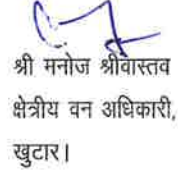 श्री मनोज श्रीवास्तव
क्षेत्रीय वन अधिकारी,
खुटार।